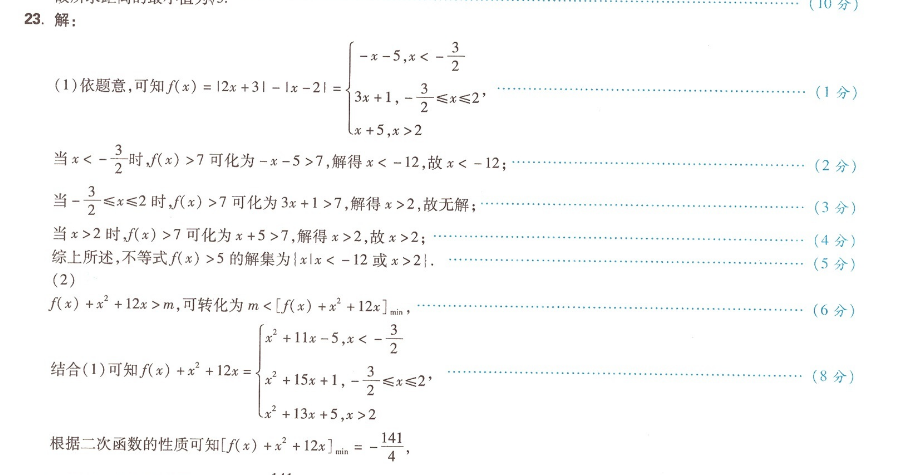 (10 分)
23. 解:
(1)依题意,可知 f(x) = |2x+3| - |x-2| = { -x-5, x < -3/2
3x+1, -3/2 ≤ x ≤ 2, (1 分)
x+5, x>2
当 x < -3/2 时, f(x) >7 可化为 -x-5>7,解得 x < -12,故 x < -12; (2 分)
当 -3/2 ≤ x ≤ 2 时, f(x) >7 可化为 3x+1>7,解得 x>2,故无解; (3 分)
当 x>2 时, f(x) >7 可化为 x+5>7,解得 x>2,故 x>2; (4 分)
综上所述,不等式 f(x) >5 的解集为{x|x < -12 或 x>2}. (5 分)
(2)
f(x) + x² + 12x > m,可转化为 m < [f(x) + x² + 12x]min, (6 分)
结合(1)可知 f(x) + x² + 12x = { x² + 11x - 5, x < -3/2
x² + 15x + 1, -3/2 ≤ x ≤ 2, (8 分)
x² + 13x + 5, x>2
根据二次函数的性质可知[f(x) + x² + 12x]min = -141/4,